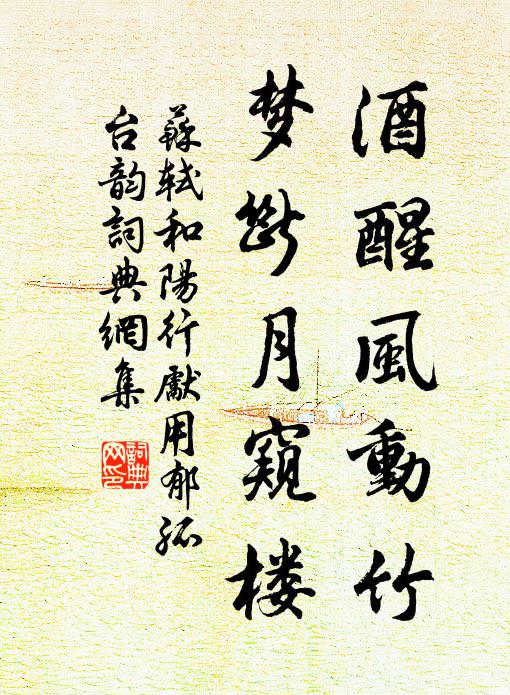 酒醒風動竹
梦斷月窺楼
蘇轼和陽行獻用郁孤
台韵詞典網集
詞典
网印